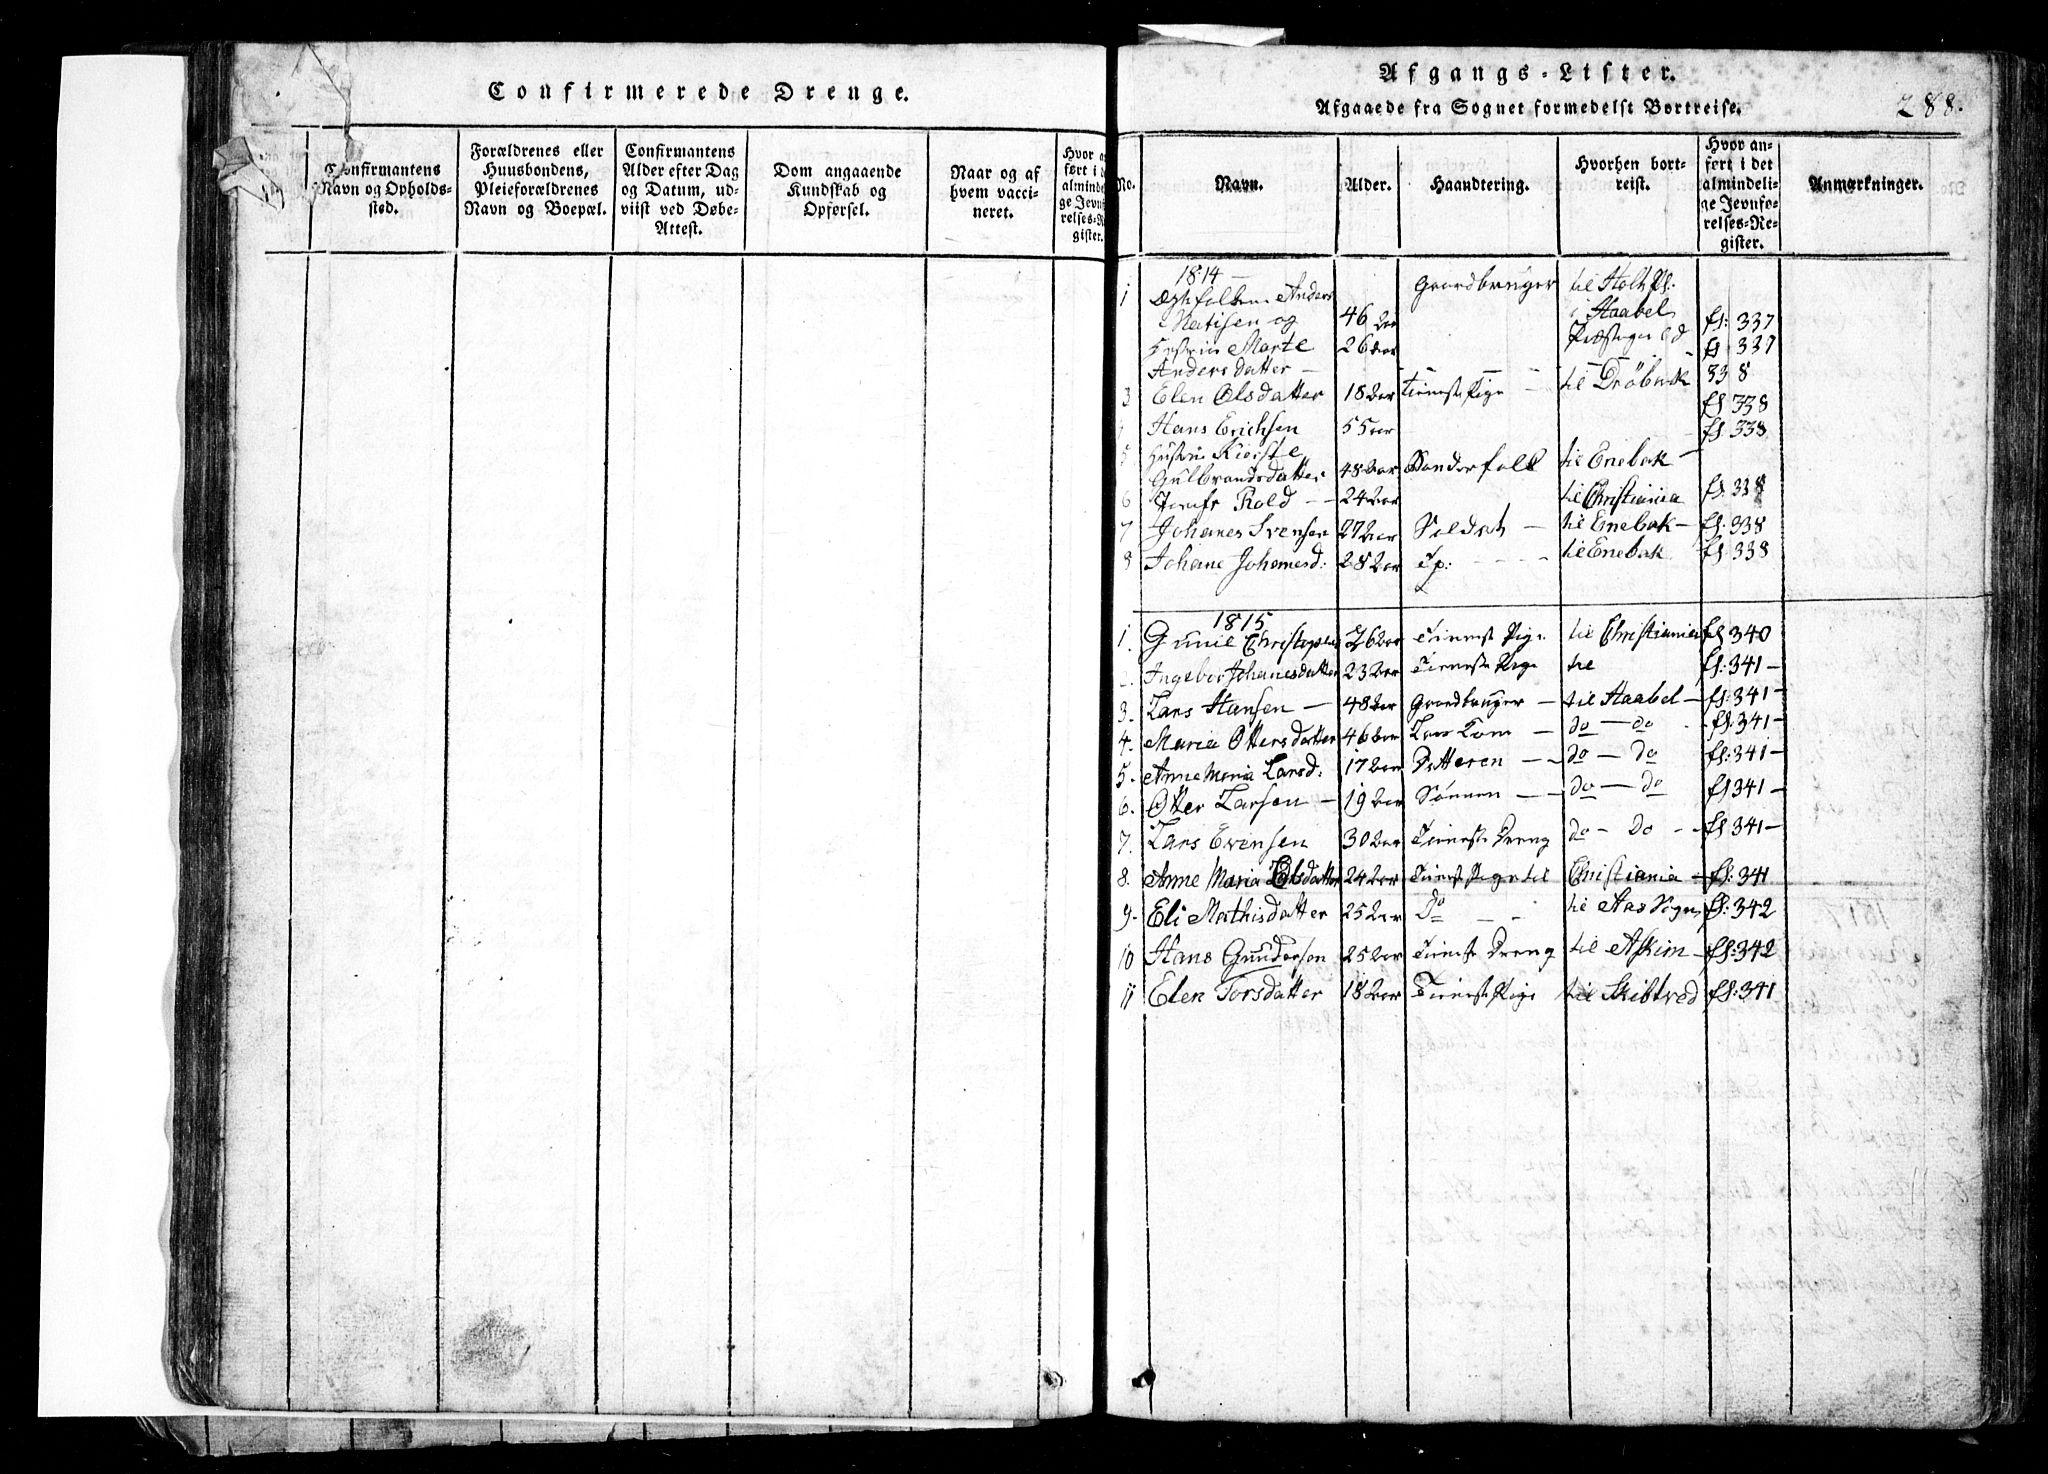 Confirmerede Drenge.
Confirmantens Navn og Opholds-sted.
Forældrenes eller Huusbondens, Pleieforældrenes Navn og Boepæl.
Confirmantens Alder efter Dag og Datum, ud-viist ved Døbe-Attest.
Dom angaaende Kundskab og Opførsel.
Naar og af hvem vacci-neret.
Afgangs-Lister.
Afgaaede fra Sognet formedelst Bortreise.
288.
No.
Navn.
Alder.
Haandtering.
Hvorhen bort-reist.
Hvor an-ført i det almindeli-ge Jevnfø-relses-Re-gister.
Anmærkninger.
1814
1 Anders Gaardbruger til Holt
Matisen og 46 Aar i Haabel fl: 337
Marte 26 Aar fl 337
Anders datter
3 Elen Olsdatter 18 Aar til Drøbak 338
Hans Erichsen 55 Aar fl 338
5 Kierste fl. 338
Gulbrandsdatter 48 Aar til Enebak
6 Rold 24 Aar til Christiania fl. 338
7 Johanes Svensen 27 Aar Soldat til Enebak fl. 338
8 Johane Johanesd: 28 Aar til Enebak fl: 338
1815
1. 26 Aar Tieneste Pige til Christiania fl 340
2. Ingebor Johanesdatter 23 Aar Tieneste Pige til fl: 341
3. Lars Hansen 48 Aar Gaardbruger til Haabel fl: 341
4. Maria Ottersdatter 46 Aar do do fl: 341
5. Anne Maria Larsd: 17 Aar Datteren do do fl: 341
6. Otter Larsen 19 Aar Sønnen do do fl 341
7. Lars Evensen 30 Aar Tieneste Dreng do Do fl 341
8. Anne Maria 24 Aar Tieneste Pige til Christiania fl: 341
9. Eli Mathisdatter 25 Aar Do til Aas Sogn fl: 342
10 Hans Gunderson 25 Aar Tieneste Dreng til Askim fl: 342
11 Elen Torsdatter 18 Aar Tieneste Pige til Skibtved fl: 341